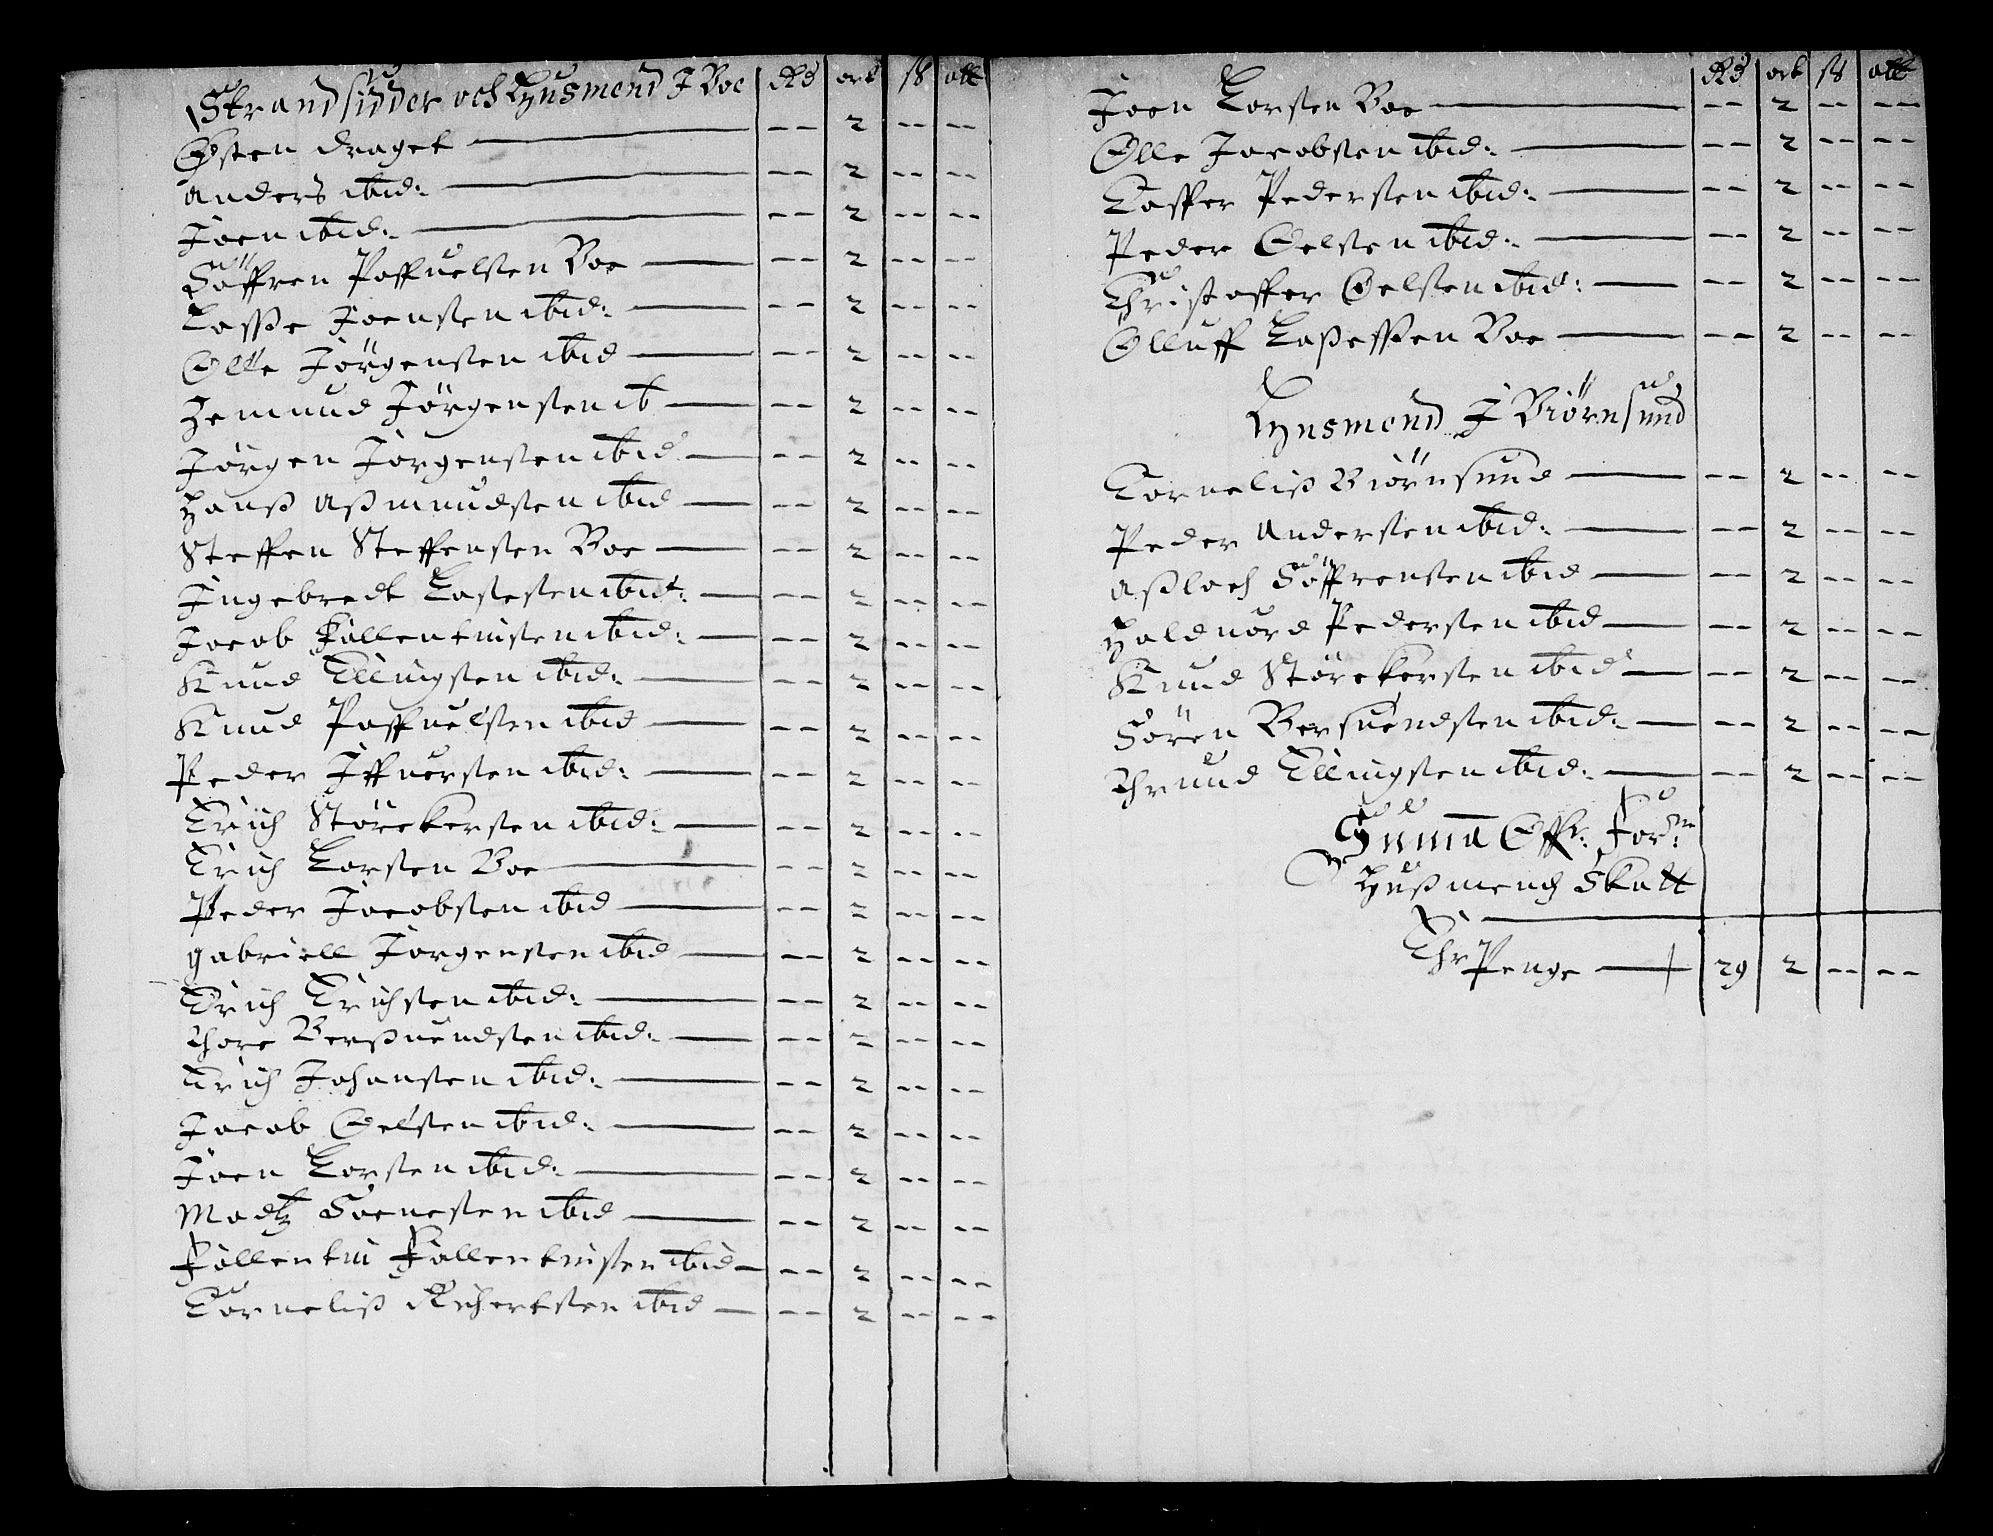 Strandsidder och Huusmend J Boe Rd ort ß alt
Østen draget -- 2 -- --
Anders ibid: -- 2 -- --
Joen ibid: -- 2 -- --
Söffren Poffuelsten Boe -- 2 -- --
Lasse Joensten ibid: -- 2 -- --
Olle Jörgensten ibid -- 2 -- --
Hemund Jörgensten ib -- 2 -- --
Jörgen Jörgensten ibid -- 2 -- --
Hanß Aßmundsten ibid -- 2 -- --
Steffen Steffensten Boe -- 2 -- --
Ingebredt Lasesten ibid: -- 2 -- --
Jacob Fallentinsten ibid: -- 2 -- --
Knud Ellingsten ibid: -- 2 -- --
Knud Poffuelsten ibid -- 2 -- --
Peder Iffuersten ibid: -- 2 -- --
Erich Störckersten ibid: -- 2 -- --
Erich Lorsten Boe -- 2 -- --
Peder Jacobsten ibid -- 2 -- --
Gabriell Jorgensten ibid -- 2 -- --
Erich Erichsten ibid: -- 2 -- --
Thore Berßuendsten ibid: -- 2 -- --
Erich Johansten ibid: -- 2 -- --
Jacob Oelsten ibid: -- 2 -- --
Joen Lorsten ibid: -- 2 -- --
Madtz ibid -- 2 -- --
Fallentin Fallentinsten ibid -- 2 -- --
Corneliß Richertsten ibid -- 2 -- --
Rd ort ß alt
Joen Lorsten Boe -- 2 -- --
Olle Jacobsten ibid: -- 2 -- --
Casper Pedersten ibid: -- 2 -- --
Peder Oelsten ibid: -- 2 -- --
Christoffer Oelsten ibid: -- 2 -- --
Olluff Laßessen Boe -- 2 -- --
Huusmend J Biörnsund
Corneliß Biörnsund -- 2 -- --
Peder Andersten ibid: -- 2 -- --
Aßlach Söffrensten ibid -- 2 -- --
Halduord Pedersten ibid -- 2 -- --
Knud Störckersten ibid -- 2 -- --
Sören Bersuendsten ibid: -- 2 -- --
Thrund Ellingsten ibid: -- 2 -- --
Suma Offr:
Hußmends Skatt
Er Penge 29 2 -- --